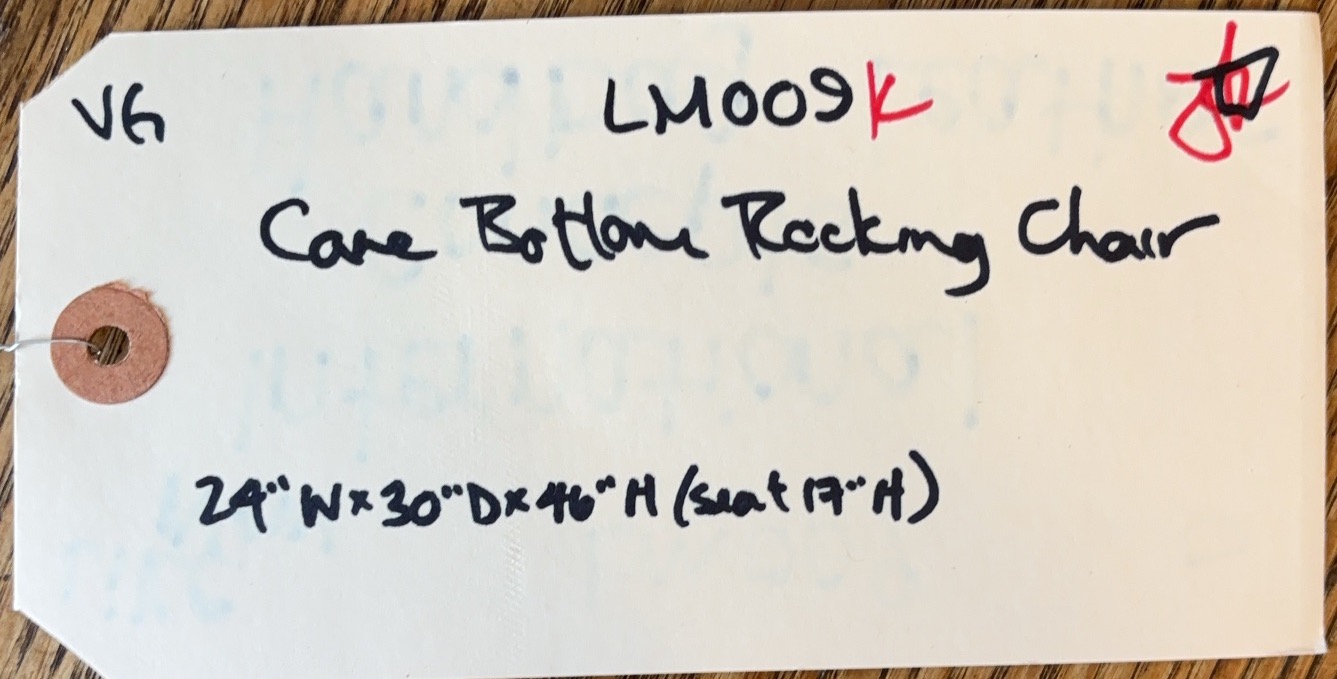 VG LM009K
Cane Bottom Rocking Chair
24" W x 30" D x 46" H (seat 17" H)